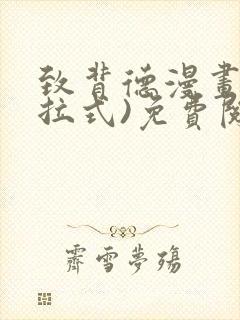 致背德漫畫
拉式)免費閱
霽雪夢殤